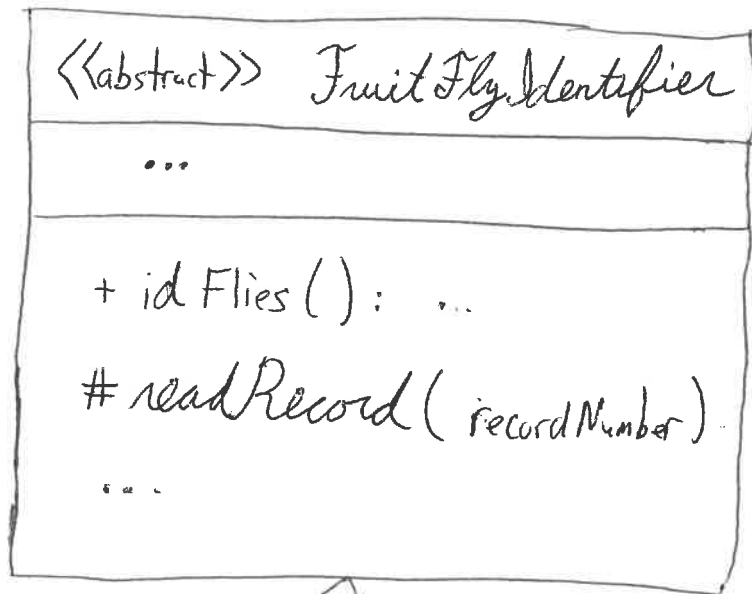 <<abstract>> FruitFlyIdentifier
...
+ idFlies(): ...
# readRecord( recordNumber)
...